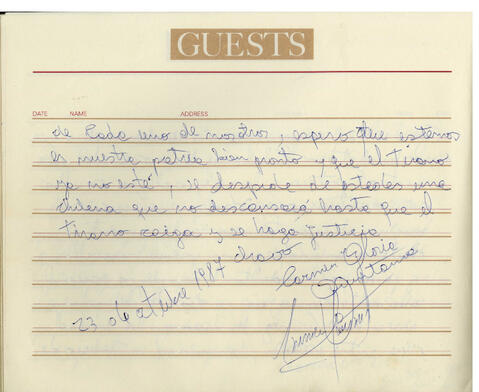 GUESTS
DATE NAME ADDRESS
de cada uno de nosotros, espero que estemos
es nuestra patria bien pronto y que el tirano
ya no esté, se despide de ustedes una
chilena que no descansará hasta que el
tirano caiga y se haga justicia
chao
Carmen Gloria
Quintana
23 octubre 1987